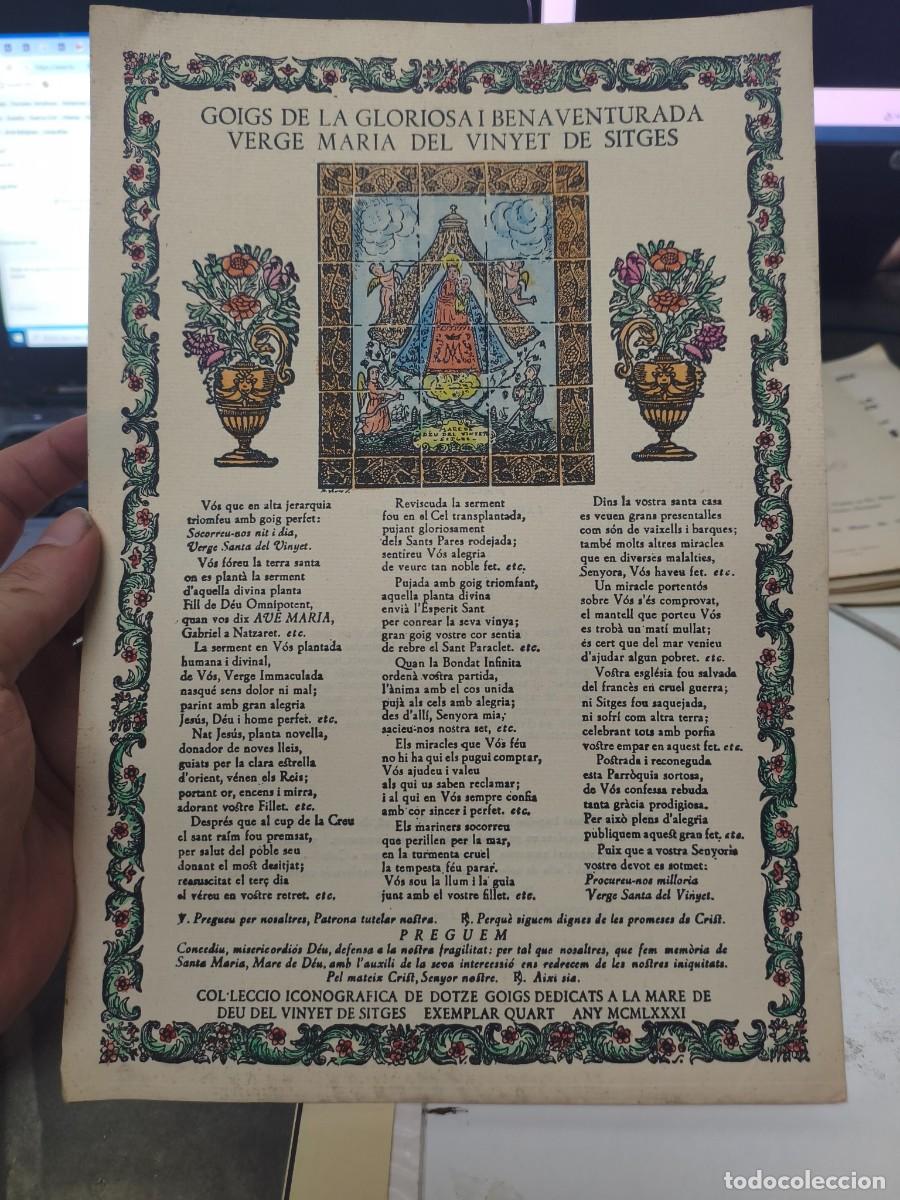 GOIGS DE LA GLORIOSA I BENAVENTURADA
VERGE MARIA DEL VINYET DE SITGES
MARE DE
DEU DEL VINYET
SITGES
Vós que en alta jerarquia
triomfeu amb goig perfet:
Socorreu-nos nit i dia,
Verge Santa del Vinyet.
Vós fóreu la terra santa
on es plantà la serment
d'aquella divina planta
Fill de Déu Omnipotent,
quan vos dix AVE MARIA,
Gabriel a Natzaret. etc.
La serment en Vós plantada
humana i divinal,
de Vós, Verge Immaculada
nasqué sens dolor ni mal;
parint amb gran alegria
Jesús, Déu i home perfet. etc.
Nat Jesús, planta novella,
donador de noves lleis,
guiats per la clara estrella
d'orient, vénen els Reis;
portant or, encens i mirra,
adorant vostre Fillet. etc.
Després que al cup de la Creu
el sant raïm fou premsat,
per salut del poble seu
donant el most desitjat;
reasuscitat el terç dia
el véreu en vostre retret. etc.
Reviscuda la serment
fou en el Cel transplantada,
pujant gloriosament
dels Sants Pares rodejada;
sentireu Vós alegria
de veure tan noble fet. etc.
Pujada amb goig triomfant,
aquella planta divina
envià l'Esperit Sant
per conrear la seva vinya;
gran goig vostre cor sentia
de rebre el Sant Paraclet. etc.
Quan la Bondat Infinita
ordenà vostra partida,
l'ànima amb el cos unida
pujà als cels amb alegria;
des d'allí, Senyora mia,
sacieu-nos nostra set, etc.
Els miracles que Vós féu
no hi ha qui els pugui comptar,
Vós ajudeu i valeu
als qui us saben reclamar;
i al qui en Vós sempre confia
amb cor sincer i perfet. etc.
Els mariners socorreu
que perillen per la mar,
en la turmenta cruel
la tempesta féu parar.
Vós sou la llum i la guia
junt amb el vostre fillet. etc.
Dins la vostra santa casa
es veuen grans presentalles
com són de vaixells i barques;
també molts altres miracles
que en diverses malalties,
Senyora, Vós haveu fet. etc.
Un miracle portentós
sobre Vós s'és comprovat,
el mantell que porteu Vós
es trobà un matí mullat;
és cert que del mar venieu
d'ajudar algun pobret. etc.
Vostra església fou salvada
del francès en cruel guerra;
ni Sitges fou saquejada,
ni sofrí com altra terra;
celebrant tots amb porfia
vostre empar en aquest fet. etc.
Postrada i reconeguda
esta Parròquia sortosa,
de Vós confessa rebuda
tanta gràcia prodigiosa.
Per això plens d'alegria
publiquem aquest gran fet. etc.
Puix que a vostra Senyoria
vostre devot es sotmet:
Procureu-nos milloria
Verge Santa del Vinyet.
℣. Pregueu per nosaltres, Patrona tutelar nostra. ℟. Perquè siguem dignes de les promeses de Crist.
PREGUEM
Concediu, misericordiós Déu, defensa a la nostra fragilitat: per tal que nosaltres, que fem memòria de
Santa Maria, Mare de Déu, amb l'auxili de la seva intercessió ens redrecem de les nostres iniquitats.
Pel mateix Crist, Senyor nostre. ℟. Així sia.
COL·LECCIO ICONOGRAFICA DE DOTZE GOIGS DEDICATS A LA MARE DE
DEU DEL VINYET DE SITGES EXEMPLAR QUART ANY MCMLXXXI
todocoleccion